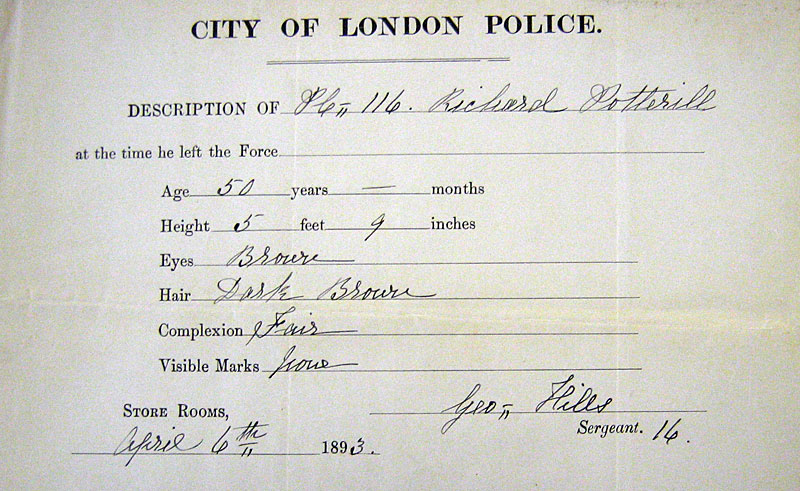 CITY OF LONDON POLICE.
DESCRIPTION OF PC 116. Richard Potterill
at the time he left the Force
Age 50 years — months
Height 5 feet 9 inches
Eyes Brown
Hair Dark Brown
Complexion Fair
Visible Marks None
STORE ROOMS,
Geo Hills
Sergeant. 16.
April 6th 1893.